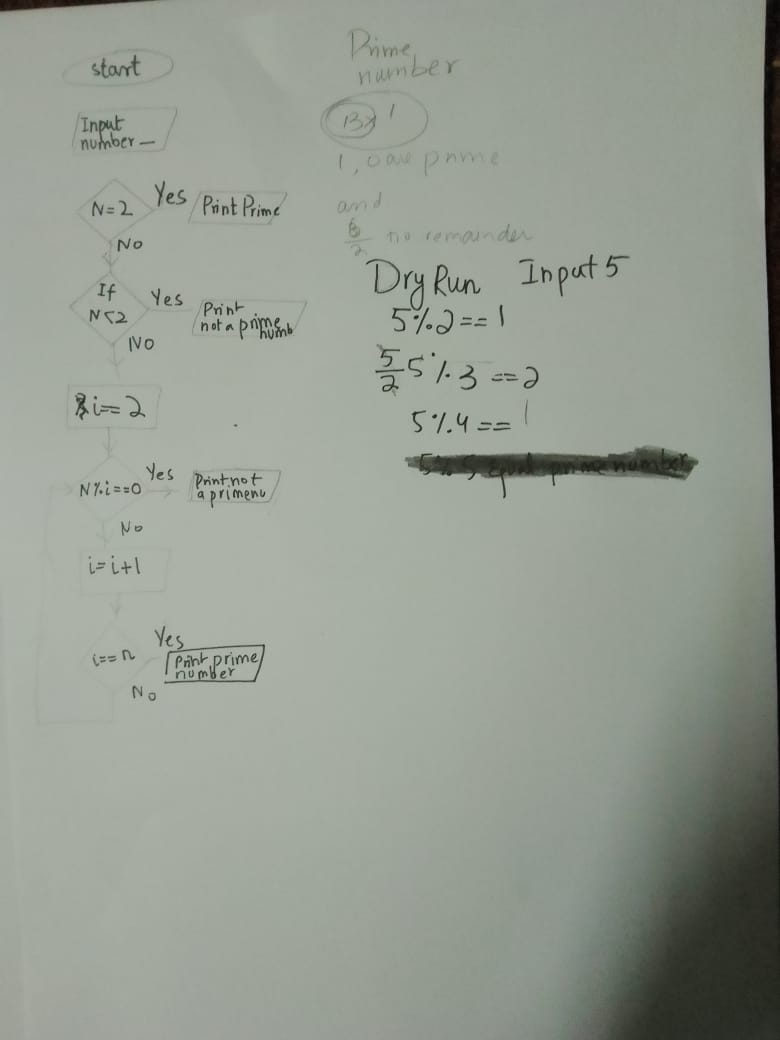 start
Input
number —
N=2
Yes
Print Prime
NO
If
N<2
Yes
Print
not a prime
numb
NO
i== 2
N%i==0
Yes
Print not
a primenu
No
i= i+1
i== n
Yes
Print prime
number
No
Prime
number
13x 1
1, prime
and
6/2 no remainder
Dry Run Input 5
5%2== 1
5/2 5%3 == 2
5%4== 1
5% 5 equal prime number